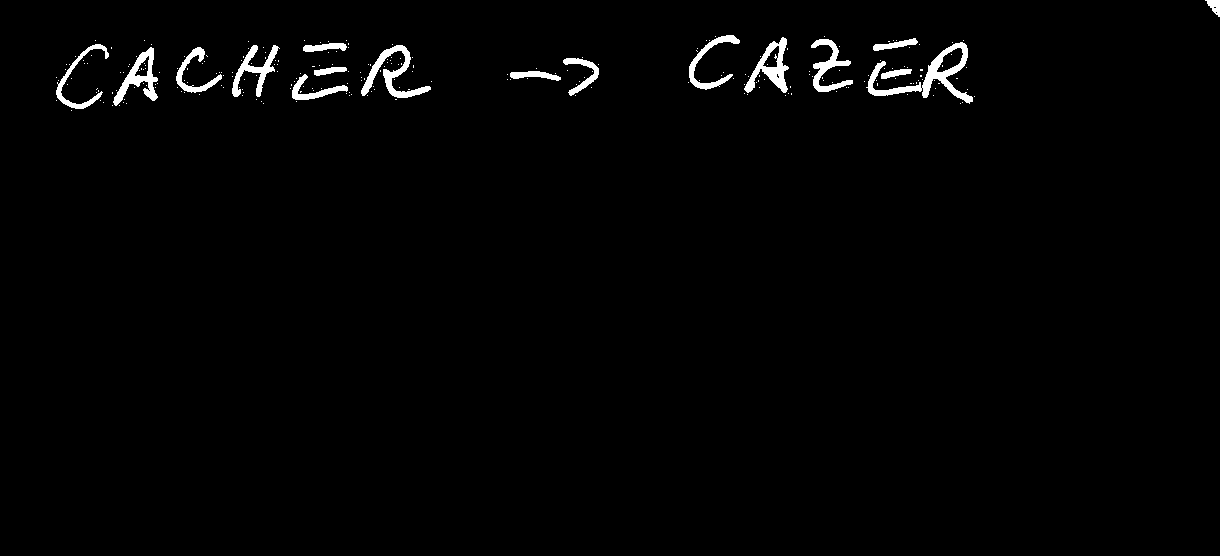 CACHER -> CAZER